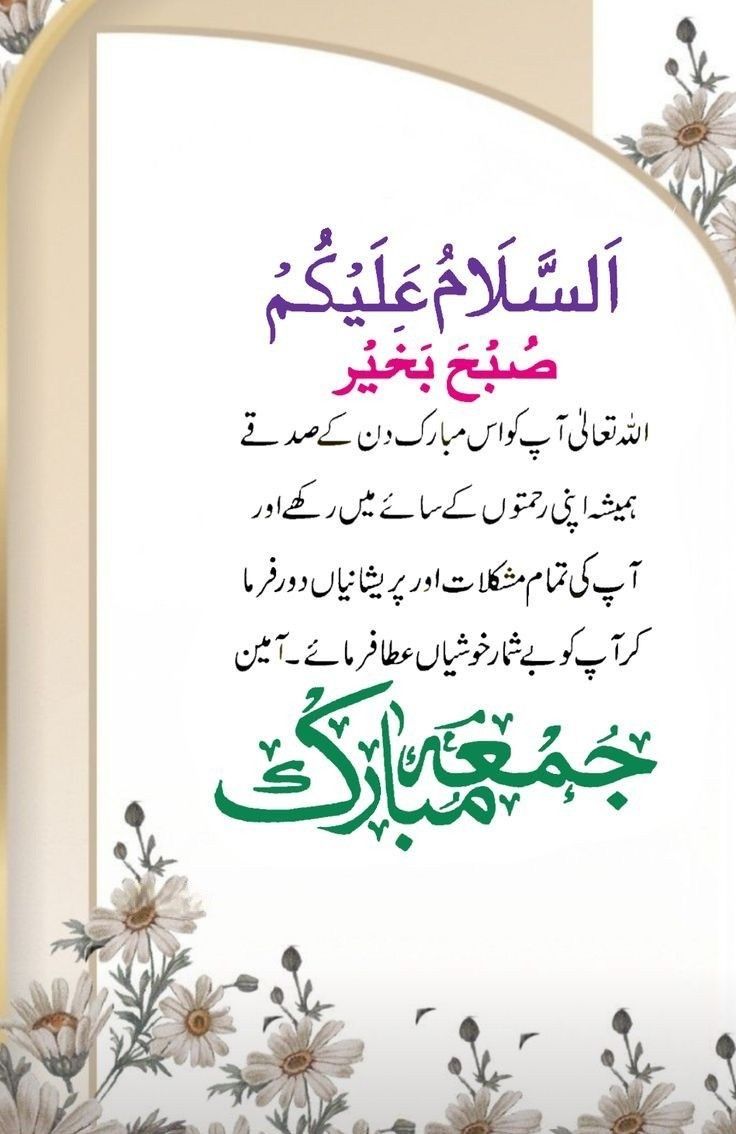 اَلسَّلَامُ عَلَیْکُمْ
صُبْحَ بَخَیْر
اللہ تعالیٰ آپ کو اس مبارک دن کے صدقے
ہمیشہ اپنی رحمتوں کے سائے میں رکھے اور
آپ کی تمام مشکلات اور پریشانیاں دور فرما
کر آپ کو بے شمار خوشیاں عطا فرمائے ۔ آمین
جُمْعَہ مُبارک